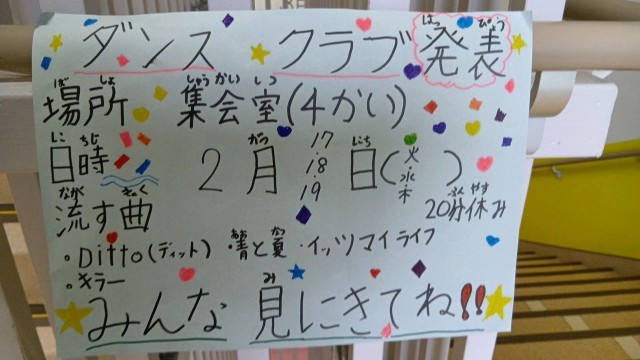 ダンス クラブ 発表
はっ ぴょう
場所 集会室(4かい)
ば しょ しゅう かい しつ
日時 2月 17 18 19 日(火 水 木)
にち じ がつ にち
20分休み
ぷん やす
流す曲
なが きょく
・Ditto(ディット) ・青と夏 ・イッツマイライフ
あお なつ
・キラー
みんな 見にきてね!!
み